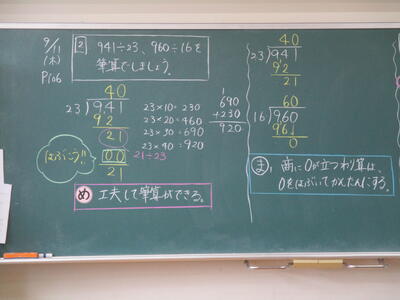 9/11
(木)
P106
2 941÷23、960÷16を
筆算でしましょう。
40
23)941
92
21
00
21
はぶこう!!
21÷23
23×10=230
23×20=460
23×30=690
23×40=920
1
690
+230
920
め 工夫して筆算ができる。
40
23)941
92
21
60
16)960
96
0
ま 商に0が立つわり算は、
0をはぶいてかんたんにする。